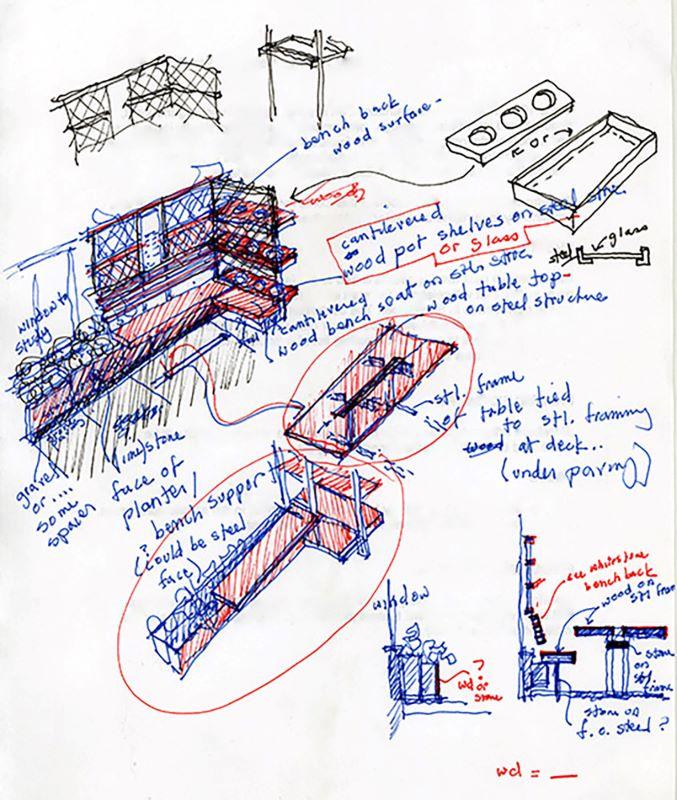 bench back
wood surface -
or
cantilevered
wood pot shelves on steel
or glass
glass
cantilevered
wood bench seat on stl. struc.
wood table top -
on steel structure
window to
study
gravel
or ....
some
spaces
limestone
face of
planter
stl. frame
of table tied
to stl. framing
wood at deck..
(under paving)
? bench support
(could be steel
face)
window
?
wd or stone
bench back
wood on
stl frame
stone
on
stl. frame
stone on
f.o. steel ?
wd = __